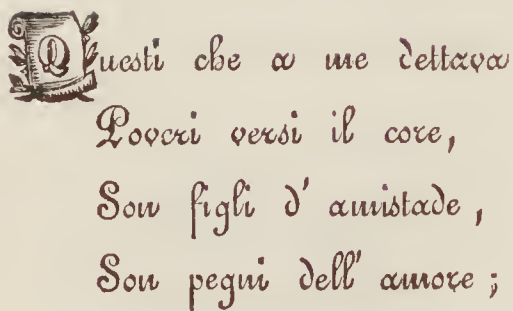 Questi che a me dettava
Poveri versi il core,
Son figli d' amistade,
Son pegni dell' amore;